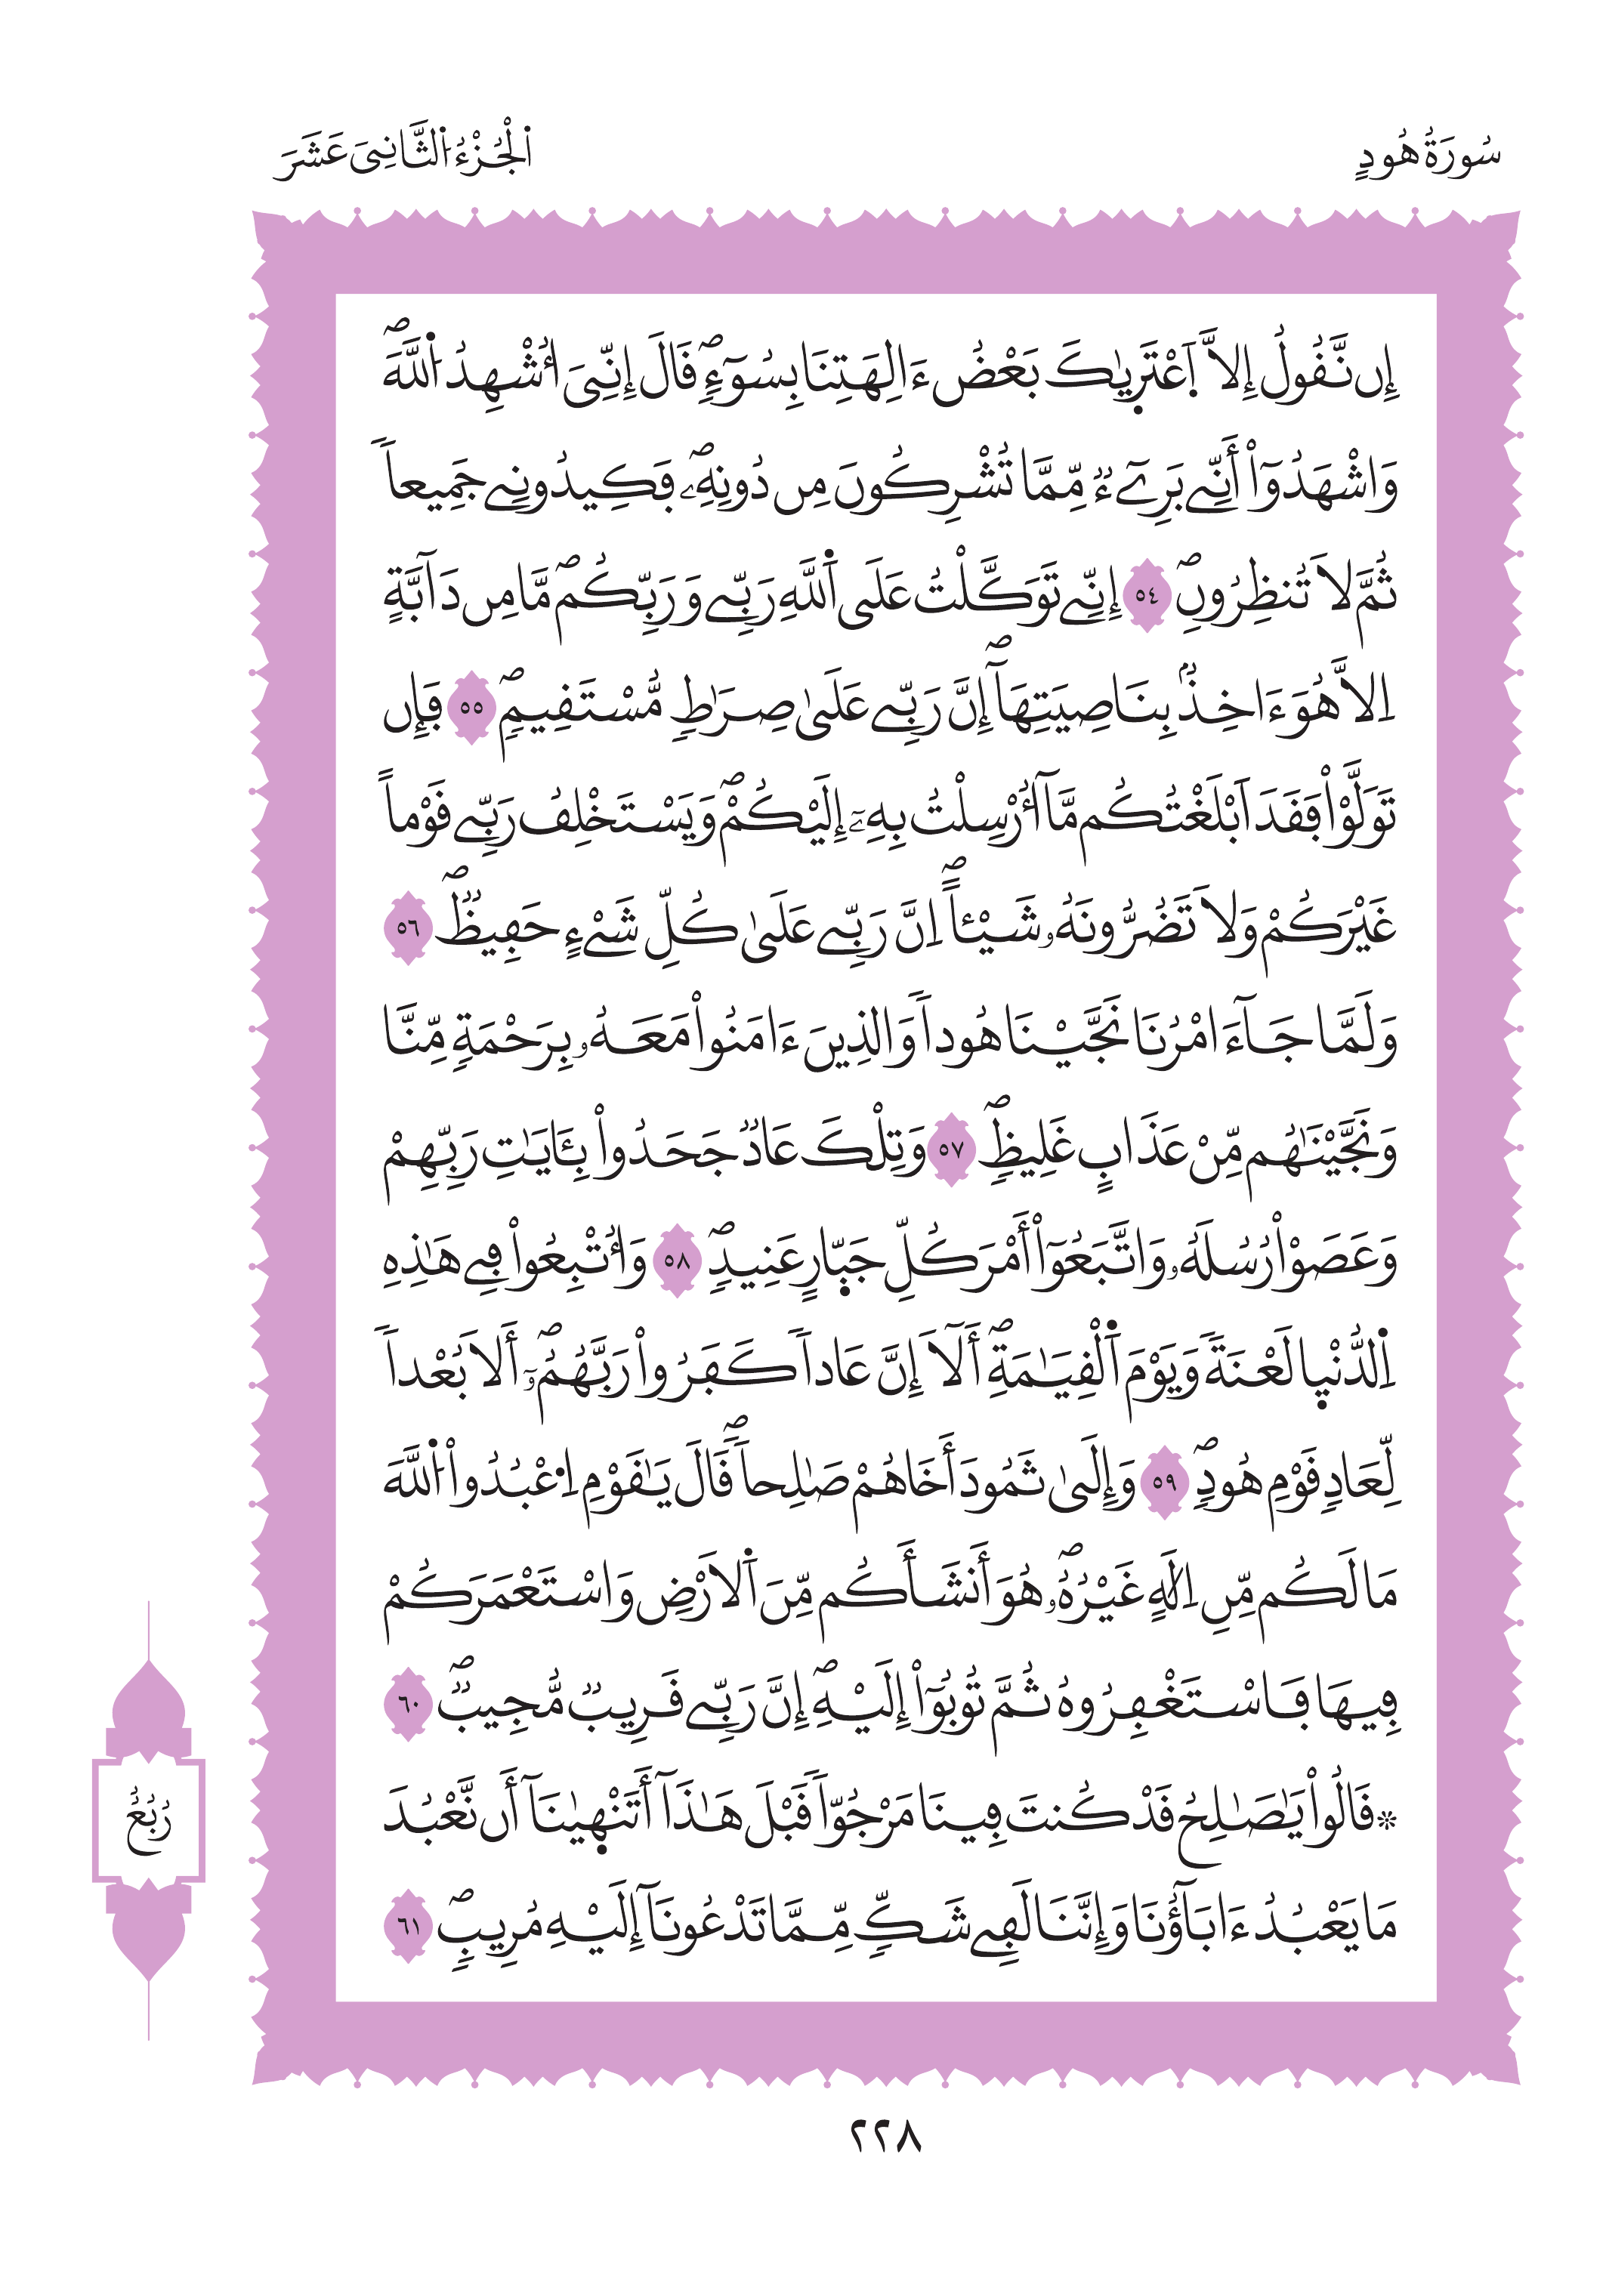 سُورَةُ هُودٍ
اَ۬لْجُزْءُ اُ۬لثَّانِيَ عَشَرَ
إِن نَّقُولُ إِلاَّ اَ۪عْتَر۪يٰكَ بَعْضُ ءَالِهَتِنَا بِسُوٓءٍۖ قَالَ إِنِّيَ أُشْهِدُ اُ۬للَّهَۖ
وَاشْهَدُوٓاْ أَنِّے بَرِےٓءٞ مِّمَّا تُشْرِكُونَ مِن دُونِهِۦۖ فَكِيدُونِے جَمِيعاٗ
ثُمَّ لَا تُنظِرُونِۖ ٥٤ إِنِّے تَوَكَّلْتُ عَلَى اَ۬للَّهِ رَبِّے وَرَبِّكُمۖ مَّا مِن دَآبَّةٍ
اِلاَّ هُوَ ءَاخِذُۢ بِنَاصِيَتِهَآۖ إِنَّ رَبِّے عَلَىٰ صِرَٰطٖ مُّسْتَقِيمٖۖ ٥٥ فَإِن
تَوَلَّوْاْ فَقَدَ اَبْلَغْتُكُم مَّآ أُرْسِلْتُ بِهِۦٓ إِلَيْكُمْۖ وَيَسْتَخْلِفُ رَبِّے قَوْماً
غَيْرَكُمْ وَلَا تَضُرُّونَهُۥ شَيْـٔاًۖ اِنَّ رَبِّے عَلَىٰ كُلِّ شَےْءٍ حَفِيظٞۖ ٥٦
وَلَمَّا جَآءَ امْرُنَا نَجَّيْنَا هُوداٗ وَالذِينَ ءَامَنُواْ مَعَهُۥ بِرَحْمَةٖ مِّنَّا
وَنَجَّيْنَٰهُم مِّنْ عَذَابٍ غَلِيظٖۖ ٥٧ وَتِلْكَ عَادٞ جَحَدُواْ بِـَٔايَٰتِ رَبِّهِمْ
وَعَصَوْاْ رُسُلَهُۥ وَاتَّبَعُوٓاْ أَمْرَ كُلِّ جَبّ۪ارٍ عَنِيدٖۖ ٥٨ وَأُتْبِعُواْ فِے هَٰذِهِ
اِ۬لدُّنْي۪ا لَعْنَةٗ وَيَوْمَ اَ۬لْقِيَٰمَةِۖ أَلَآ إِنَّ عَاداٗ كَفَرُواْ رَبَّهُمُۥٓۖ أَلَا بُعْداٗ
لِّعَادٖ قَوْمِ هُودٖۖ ٥٩ وَإِلَىٰ ثَمُودَ أَخَاهُمْ صَٰلِحاٗۖ قَالَ يَٰقَوْمِ اِ۟عْبُدُواْ اُ۬للَّهَ
مَا لَكُم مِّنِ اِلَٰهٍ غَيْرُهُۥۖ هُوَ أَنشَأَكُم مِّنَ اَ۬لَارْضِ وَاسْتَعْمَرَكُمْ
فِيهَا فَاسْتَغْفِرُوهُ ثُمَّ تُوبُوٓاْ إِلَيْهِۖ إِنَّ رَبِّے قَرِيبٞ مُّجِيبٞۖ ٦٠
۞قَالُواْ يَٰصَٰلِحُ قَدْ كُنتَ فِينَا مَرْجُوّاٗ قَبْلَ هَٰذَآ أَتَنْه۪يٰنَآ أَن نَّعْبُدَ
مَا يَعْبُدُ ءَابَآؤُنَا وَإِنَّنَا لَفِے شَكّٖ مِّمَّا تَدْعُونَآ إِلَيْهِ مُرِيبٖۖ ٦١
رُبُعُ
٢٢٨